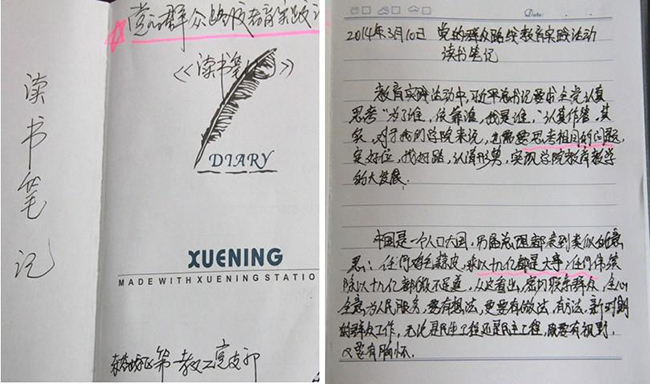 党的群众路线教育实践活
《读书笔记》
读书笔记
DIARY
XUENING
MADE WITH XUENING STATIO
第一教工党支部
Date
2014年3月10日 党的群众路线教育实践活动
读书笔记
教育实践活动中,习近平总书记要求全党认真
思考"为了谁,依靠谁,我是谁,"认真作答,其
实,对于我们学院来说,也需要思考相同的问题,
定好位,找好路,认清形势,实现学院教育教学
的大发展.
中国是一个人口大国,历届总理都表达类似的意
思:任何
除以十几亿都微不足道,从这看出,密切联系群众,全心
全意为人民服务,要有想法,更要有做法,有方法,新时期
的群众工作,无论是民生工程还是民主工程,既要有规则,
又要有胸怀.